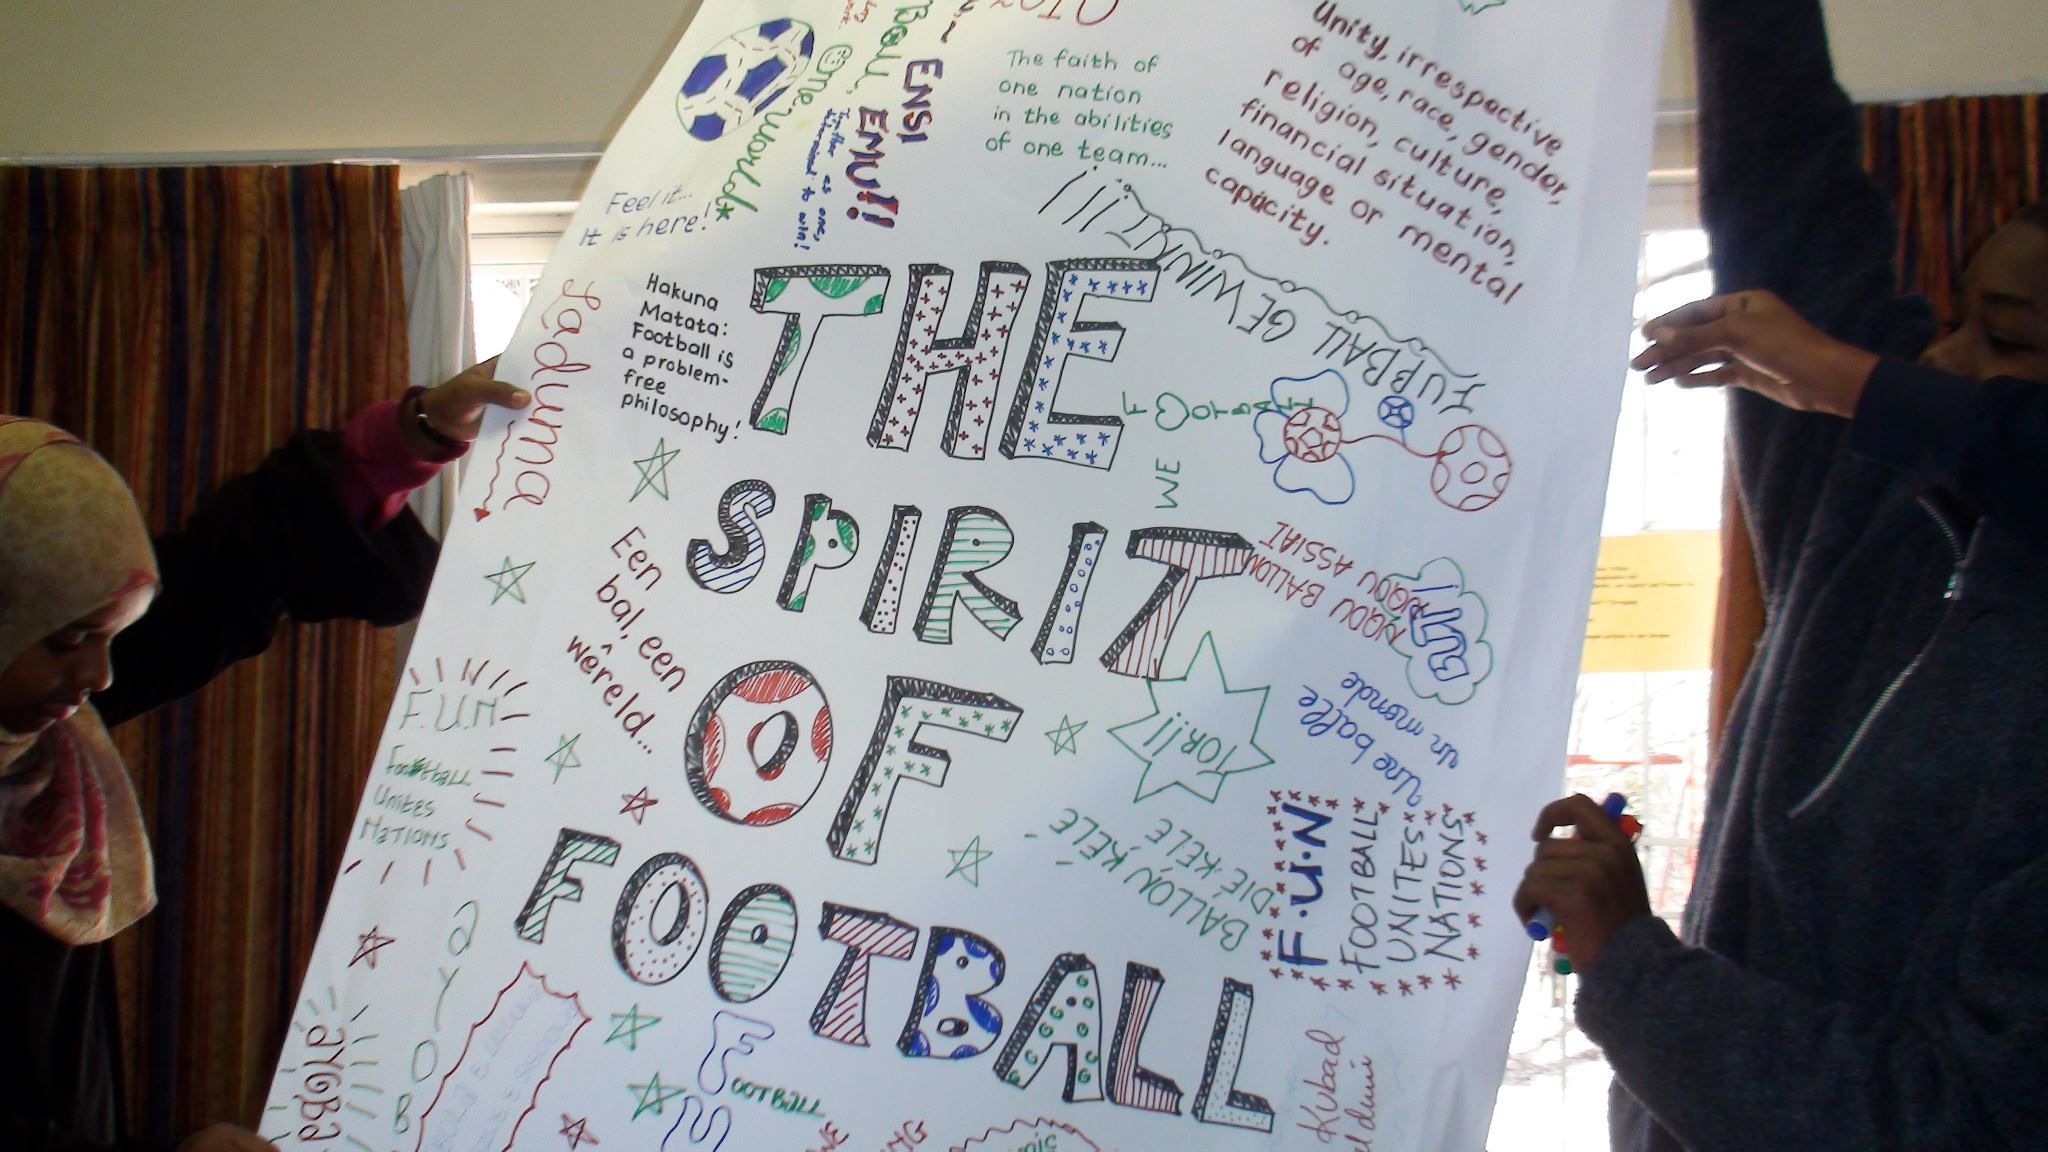 Ball.
One world*
Together as one,
determined to win!
ENSI
EMU!!
Feel it...
It is here!
The faith of
one nation
in the abilities
of one team...
Unity, irrespective
of age, race, gender,
religion, culture,
financial situation,
language or mental
capacity.
Laduma
Hakuna
Matata:
Football is
a problem-
free
philosophy!
THE
SPIRIT
OF
FOOTBALL
FUßBALL GEWINNT!!!
WE
F OTBALL
NQDU BALLOM
NQDU ASSIAI
BUT!
Een
bal, een
wêreld...
TOR!!!
Une balle
un monde
BALLON KÉLÉ
DIÉ KÉLÉ
F.U.N
Football
Unites
Nations
F.U.N
FOOTBALL
UNITES
NATIONS
AYOBA
OOTBALL
Kubad